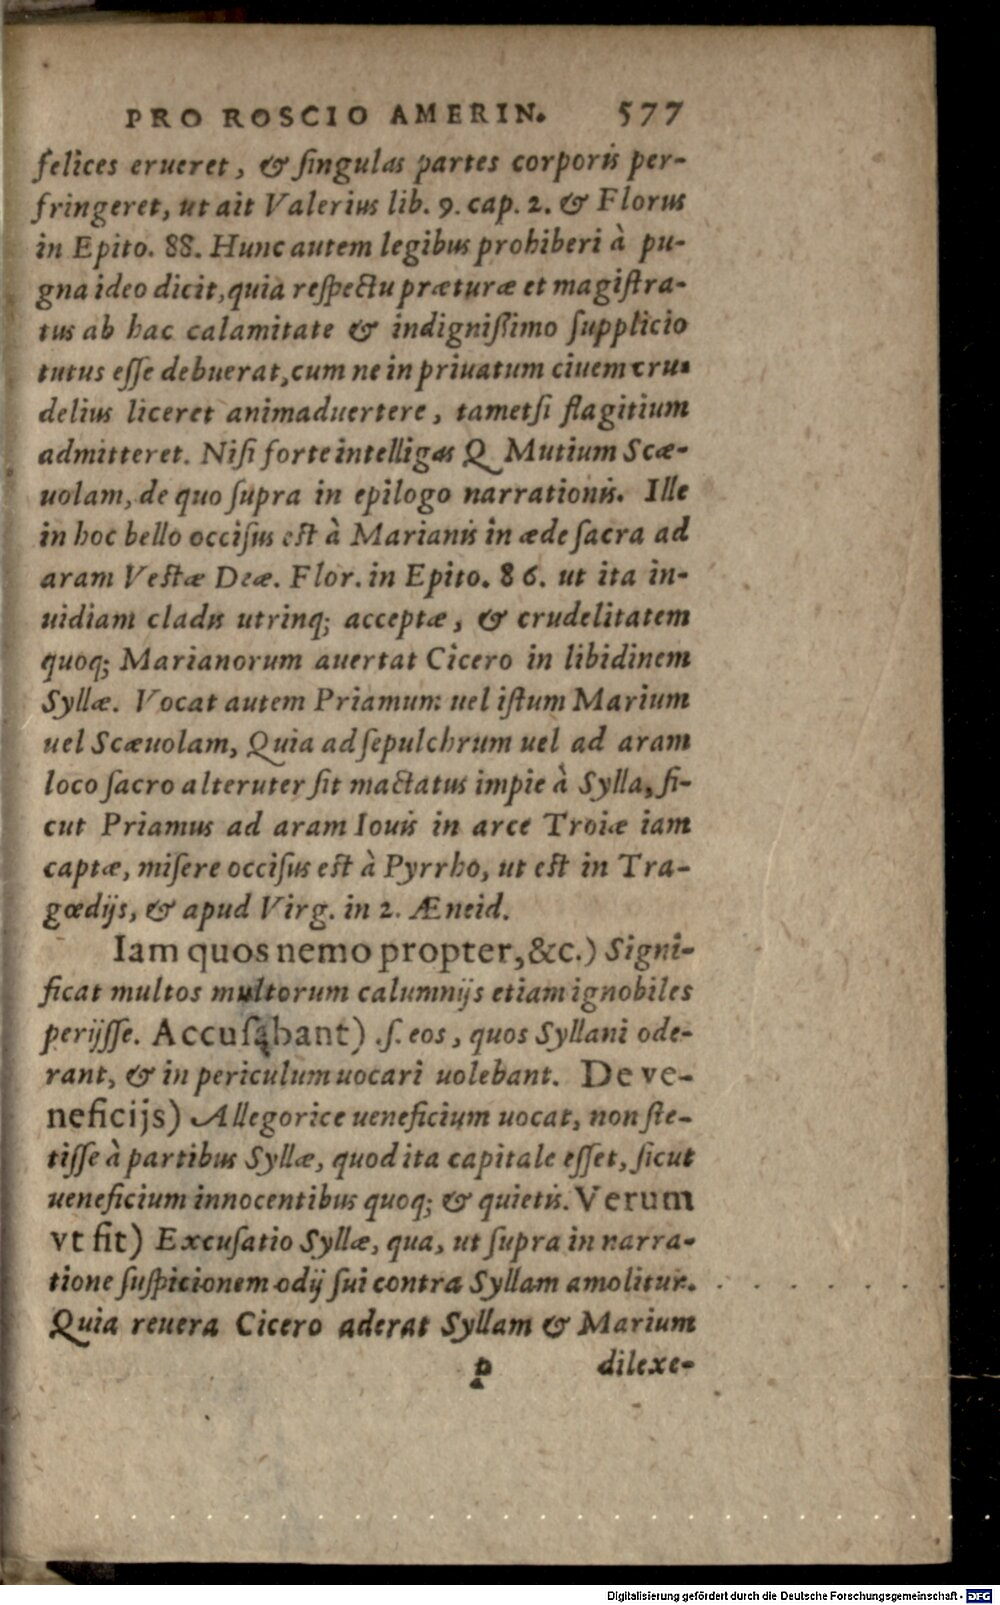 PRO ROSCIO AMERIN. 577
felices erueret, & ſingulas partes corporis per-
fringeret, ut ait Valerius lib. 9. cap. 2. & Florus
in Epito. 88. Hunc autem legibus prohiberi à pu-
gna ideo dicit, quia reſpectu præturæ et magiſtra-
tus ab hac calamitate & indigniſſimo ſupplicio
tutus eſſe debuerat, cum ne in priuatum ciuem cru-
delius liceret animaduertere, tametſi flagitium
admitteret. Niſi forte intelligas Q Mutium Scæ-
uolam, de quo ſupra in epilogo narrationis. Ille
in hoc bello occiſus eſt à Marianis in æde ſacra ad
aram Veſtæ Deæ. Flor. in Epito. 86. ut ita in-
uidiam cladis utrinq; acceptæ, & crudelitatem
quoq; Marianorum auertat Cicero in libidinem
Syllæ. Vocat autem Priamum uel iſtum Marium
uel Scæuolam, Quia ad ſepulchrum uel ad aram
loco ſacro alteruter ſit mactatus impie à Sylla, ſi-
cut Priamus ad aram Iouis in arce Troiæ iam
captæ, miſere occiſus eſt à Pyrrho, ut eſt in Tra-
gœdijs, & apud Virg. in 2. Æneid.
Iam quos nemo propter, &c.) Signi-
ficat multos multorum calumnijs etiam ignobiles
perijſſe. Accuſabant) .ſ. eos, quos Syllani ode-
rant, & in periculum uocari uolebant. De ve-
neficijs) Allegorice ueneficium uocat, non ſte-
tiſſe à partibus Syllæ, quod ita capitale eſſet, ſicut
ueneficium innocentibus quoq; & quietis. Verum
vt fit) Excuſatio Syllæ, qua, ut ſupra in narra-
tione ſuſpicionem odij ſui contra Syllam amolitur.
Quia reuera Cicero aderat Syllam & Marium
p dilexe-
Digitalisierung gefördert durch die Deutsche Forschungsgemeinschaft - DFG